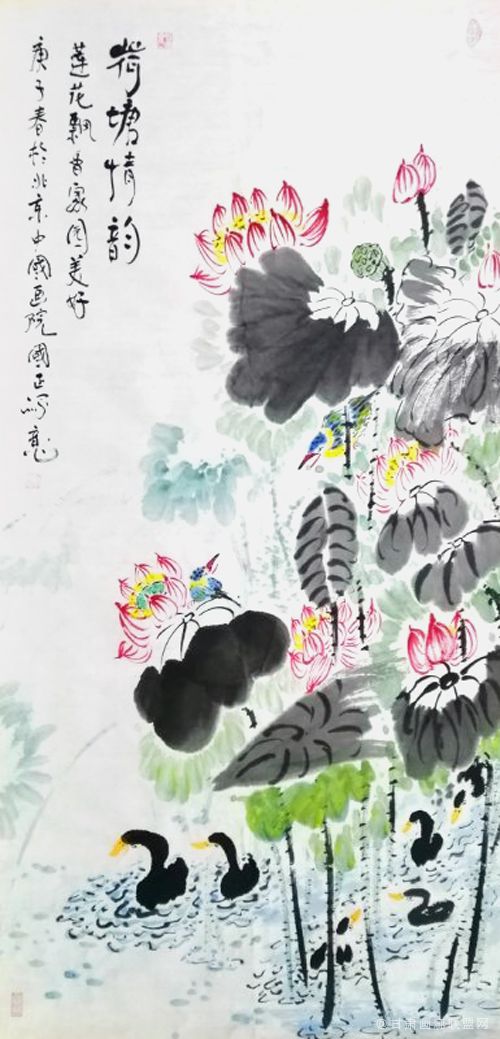 荷塘情韵
莲花飘香家园美好
庚子春於北京中國画院國正写意
@甘肃画廊联盟网